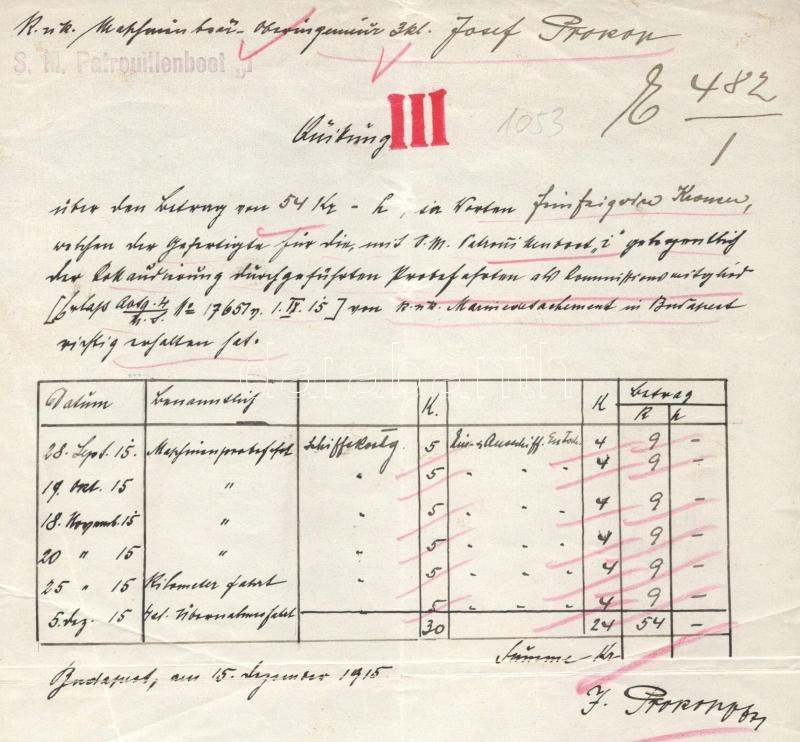 K. u. k. Maschinenbau- Oberingenieur 3kl. Josef Prokop
S. M. Patrouillenboot „i
E 482
1
1053
Quittung III
über den Betrag von 54 Kr - h, in Worten fünfzigvier Kronen,
welchen der Gefertigte für die, mit S. M. Patrouillenboot „i" gelegentlich
der durchgeführten Probefahrten als Commissionsmitglied
[Erlass No 1765/v. 1. IX. 15] von k. u. k. Marinedetachement in Budapest
richtig erhalten hat.
darabanth
Datum Benanntlich K. K Betrag
K h
28. Sept. 15. Maschinenprobefahrt 5 4 9 -
19. Okt. 15 " " 5 " " " 4 9 -
18. Novemb. 15 " " 5 " " " 4 9 -
20 " 15 " " 5 " " " 4 9 -
25 " 15 Kilometerfahrt " 5 " " " 4 9 -
5. Dez. 15 Übernahmsfahrt " 5 " " " 4 9 -
30 24 54 -
Summe Kr
Budapest, am 15. Dezember 1915.
J. Prokop